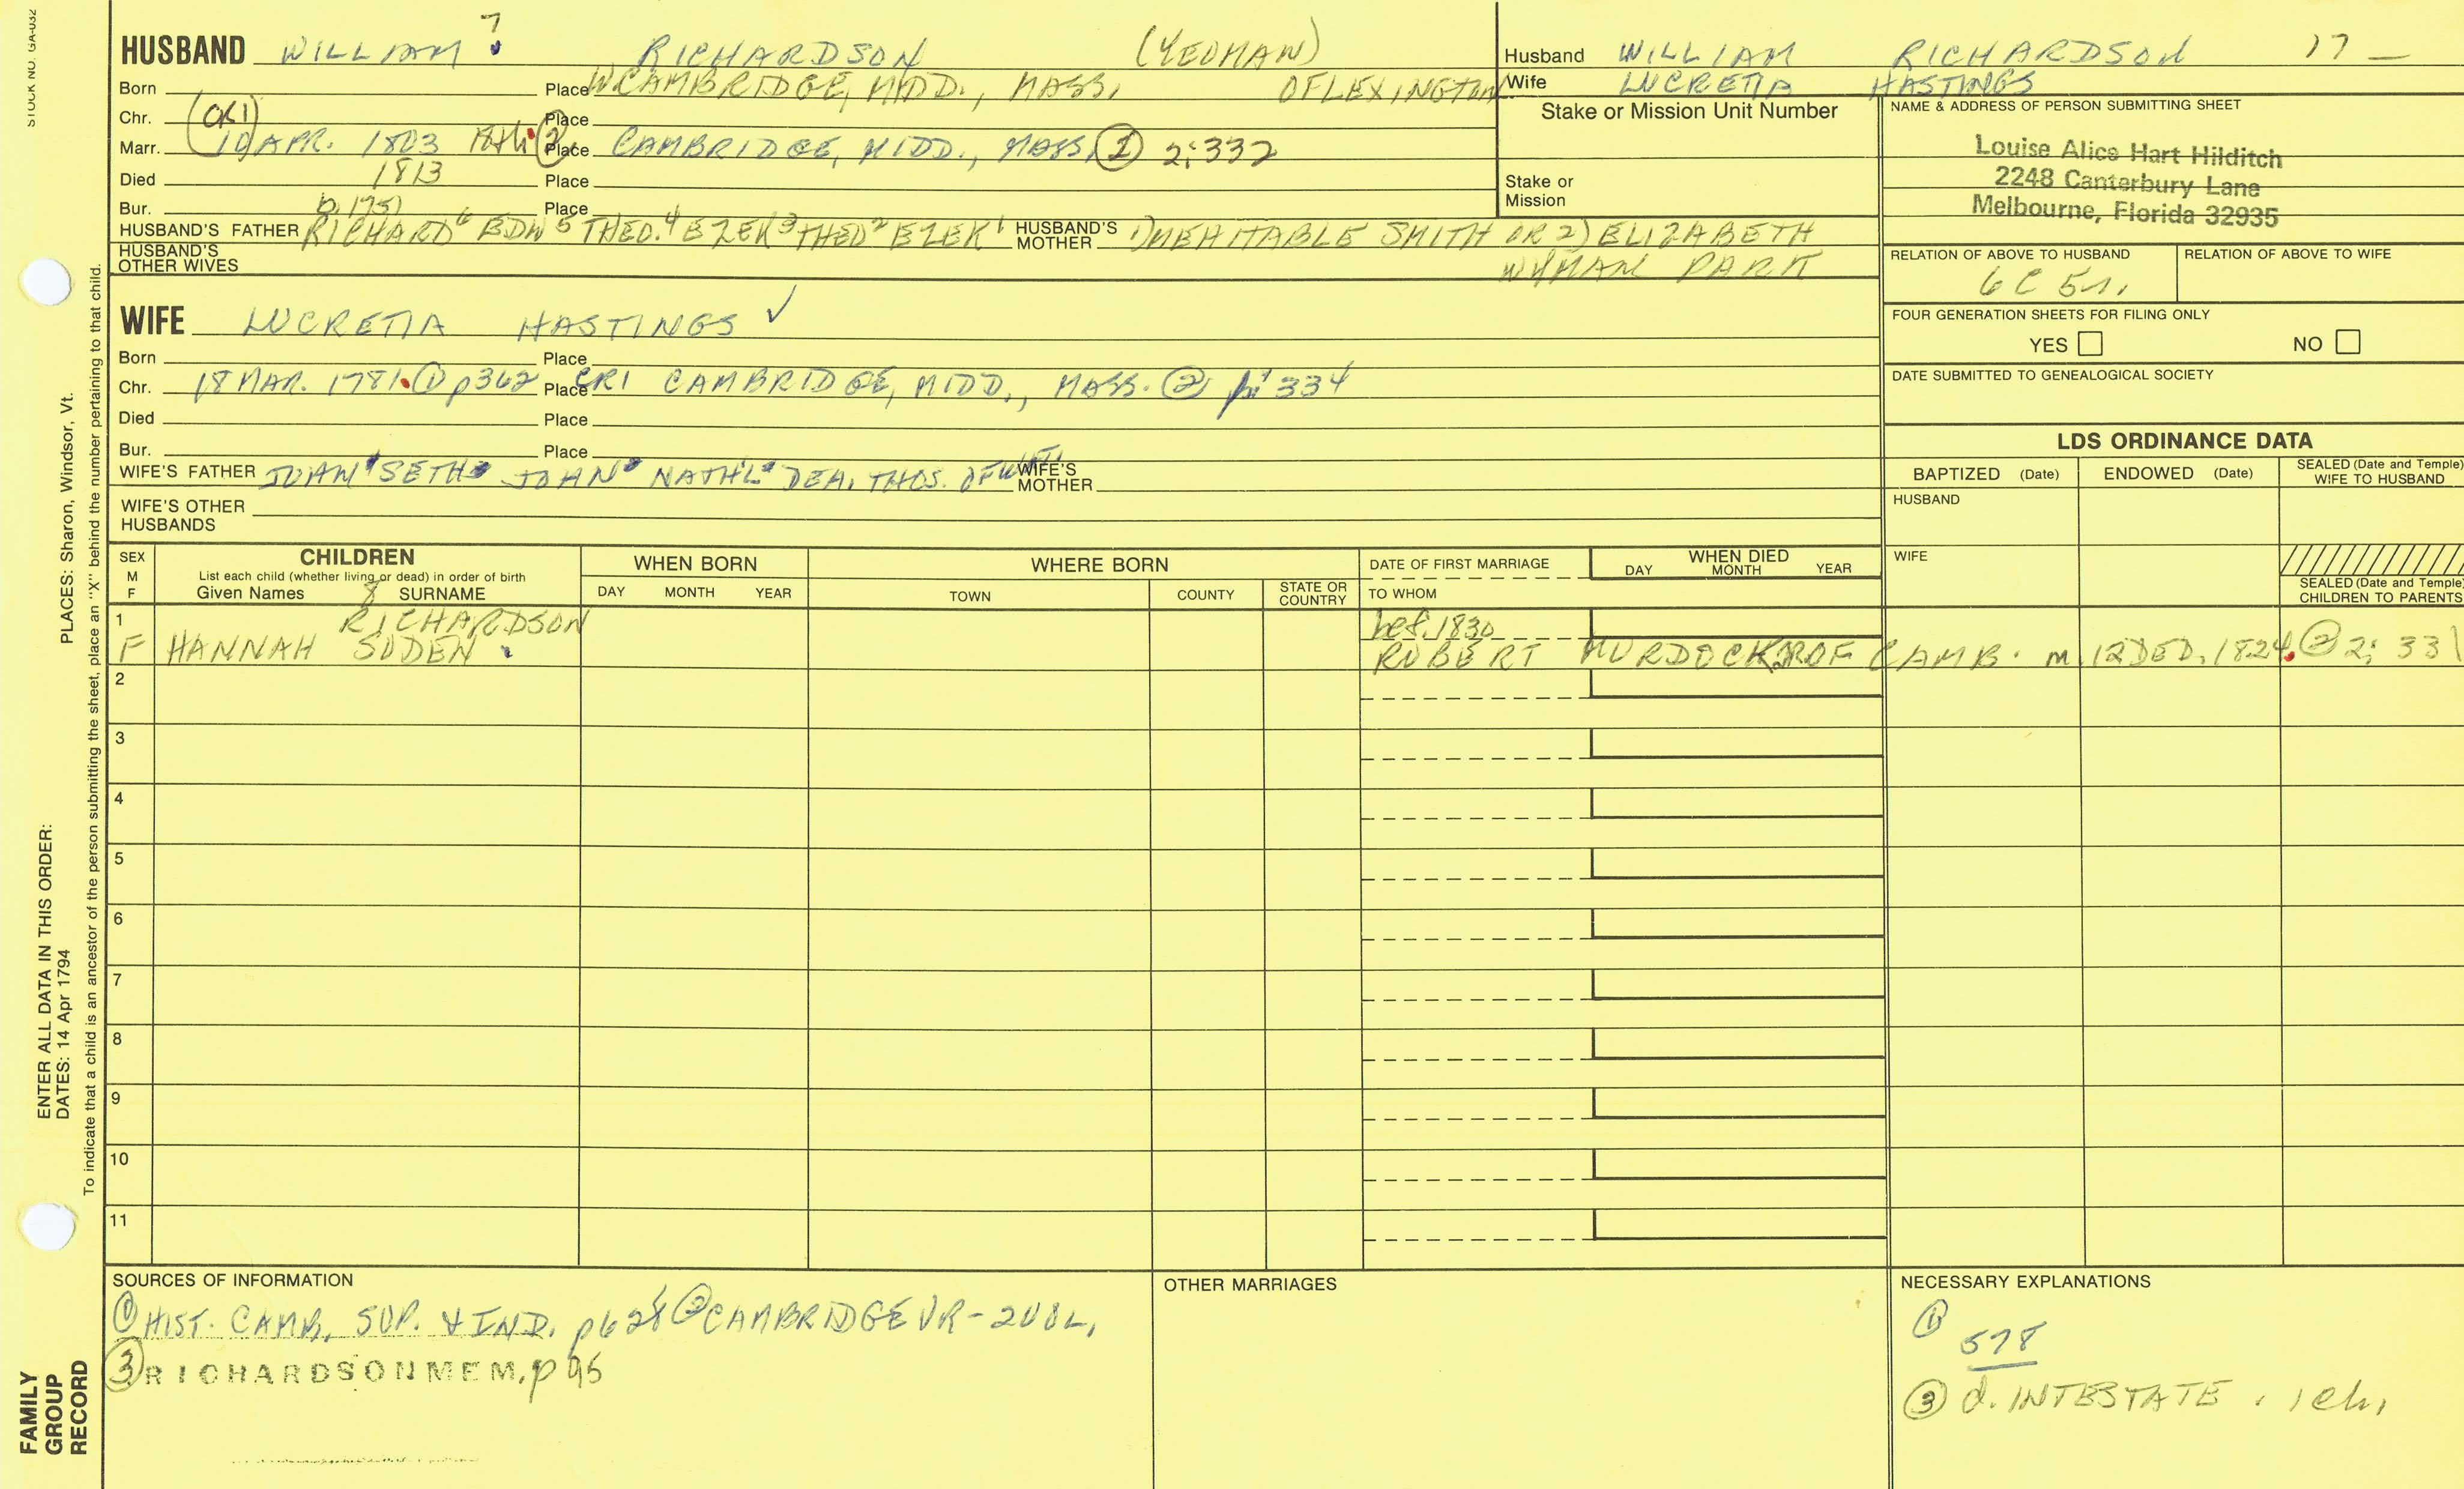 STOCK NO. GA-032
HUSBAND WILLIAM 7 RICHARDSON (YEOMAN)
Born Place W CAMBRIDGE, MIDD., MASS, OF LEXINGTON
Chr. (CR1) Place
Marr. 10 APR. 1803 ② Place CAMBRIDGE, MIDD., MASS. ① 2:332
Died 1813 Place
Bur. b. 1751 Place
HUSBAND'S FATHER RICHARD 6 EDW 5 THEO. 4 EZEK 3 THEO 2 EZEK 1 HUSBAND'S MOTHER 1) MEHITABLE SMITH OR 2) ELIZABETH
WYMAN PARK
HUSBAND'S OTHER WIVES
Husband WILLIAM RICHARDSON 17 _
Wife LUCRETIA HASTINGS
Stake or Mission Unit Number
Stake or Mission
NAME & ADDRESS OF PERSON SUBMITTING SHEET
Louise Alice Hart Hilditch
2248 Canterbury Lane
Melbourne, Florida 32935
RELATION OF ABOVE TO HUSBAND
6C 5r.
RELATION OF ABOVE TO WIFE
FOUR GENERATION SHEETS FOR FILING ONLY
YES NO
DATE SUBMITTED TO GENEALOGICAL SOCIETY
WIFE LUCRETIA HASTINGS ✓
Born Place
Chr. 18 MAR. 1781. ① p362 Place CR1 CAMBRIDGE, MIDD., MASS. ② 334
Died Place
Bur. Place
WIFE'S FATHER JOHN SETH JOHN NATH'L DEA. THOS. OF WIFE'S MOTHER
WIFE'S OTHER HUSBANDS
LDS ORDINANCE DATA
BAPTIZED (Date) ENDOWED (Date) SEALED (Date and Temple) WIFE TO HUSBAND
HUSBAND
WIFE
SEALED (Date and Temple) CHILDREN TO PARENTS
SEX M F
CHILDREN
List each child (whether living or dead) in order of birth
Given Names 8 SURNAME
WHEN BORN
DAY MONTH YEAR
WHERE BORN
TOWN COUNTY STATE OR COUNTRY
DATE OF FIRST MARRIAGE
TO WHOM
WHEN DIED
DAY MONTH YEAR
1 RICHARDSON bef. 1830
F HANNAH SODEN ROBERT MURDOCK JR OF CAMB. m. 12 DED. 1824. ② 2: 331
2
3
4
5
6
7
8
9
10
11
SOURCES OF INFORMATION
① HIST. CAMB, SUP. & IND. p628 ② CAMBRIDGE VR - 2 VOL,
③ RICHARDSON MEM, p 95
OTHER MARRIAGES
NECESSARY EXPLANATIONS
①
578
③ d. INTESTATE . 1 ch,
PLACES: Sharon, Windsor, Vt.
ENTER ALL DATA IN THIS ORDER:
DATES: 14 Apr 1794
To indicate that a child is an ancestor of the person submitting the sheet, place an "X" behind the number pertaining to that child.
FAMILY
GROUP
RECORD